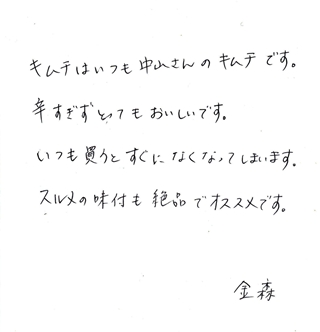 キムチはいつも中山さんのキムチです。
辛すぎずとってもおいしいです。
いつも買うとすぐになくなってしまいます。
スルメの味付も絶品でオススメです。
金森